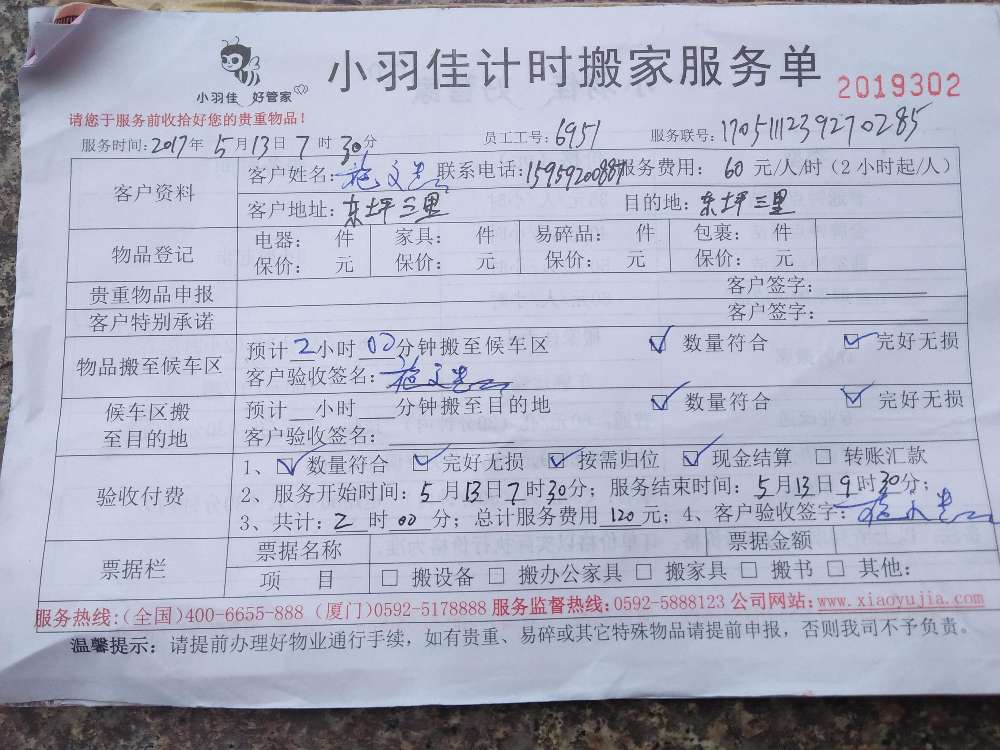 小羽佳 好管家
小羽佳计时搬家服务单
2019302
请您于服务前收拾好您的贵重物品！
服务时间：2017年 5月13日 7时30分 员工工号：6951 服务联号：170511123927 0285
客户资料 客户姓名： 联系电话：15959200887 服务费用： 60 元/人/时（2小时起/人）
客户地址：东坪三里 目的地：东坪三里
物品登记 电器： 件 家具： 件 易碎品： 件 包裹： 件
保价： 元 保价： 元 保价： 元 保价： 元
贵重物品申报 客户签字：
客户特别承诺 客户签字：
物品搬至候车区 预计2小时00分钟搬至候车区 ☑ 数量符合 ☑ 完好无损
客户验收签名：
候车区搬至目的地 预计 小时 分钟搬至目的地 ☑ 数量符合 ☑ 完好无损
客户验收签名：
验收付费 1、☑ 数量符合 ☑ 完好无损 ☑ 按需归位 ☑ 现金结算 □ 转账汇款
2、服务开始时间：5月13日7时30分；服务结束时间：5月13日9时30分；
3、共计：2 时00分；总计服务费用 120 元；4、客户验收签字：
票据栏 票据名称 票据金额
项 目 □ 搬设备 □ 搬办公家具 □ 搬家具 □ 搬书 □ 其他：
服务热线：(全国)400-6655-888 (厦门)0592-5178888 服务监督热线：0592-5888123 公司网站：www.xiaoyujia.com
温馨提示：请提前办理好物业通行手续，如有贵重、易碎或其它特殊物品请提前申报，否则我司不予负责。